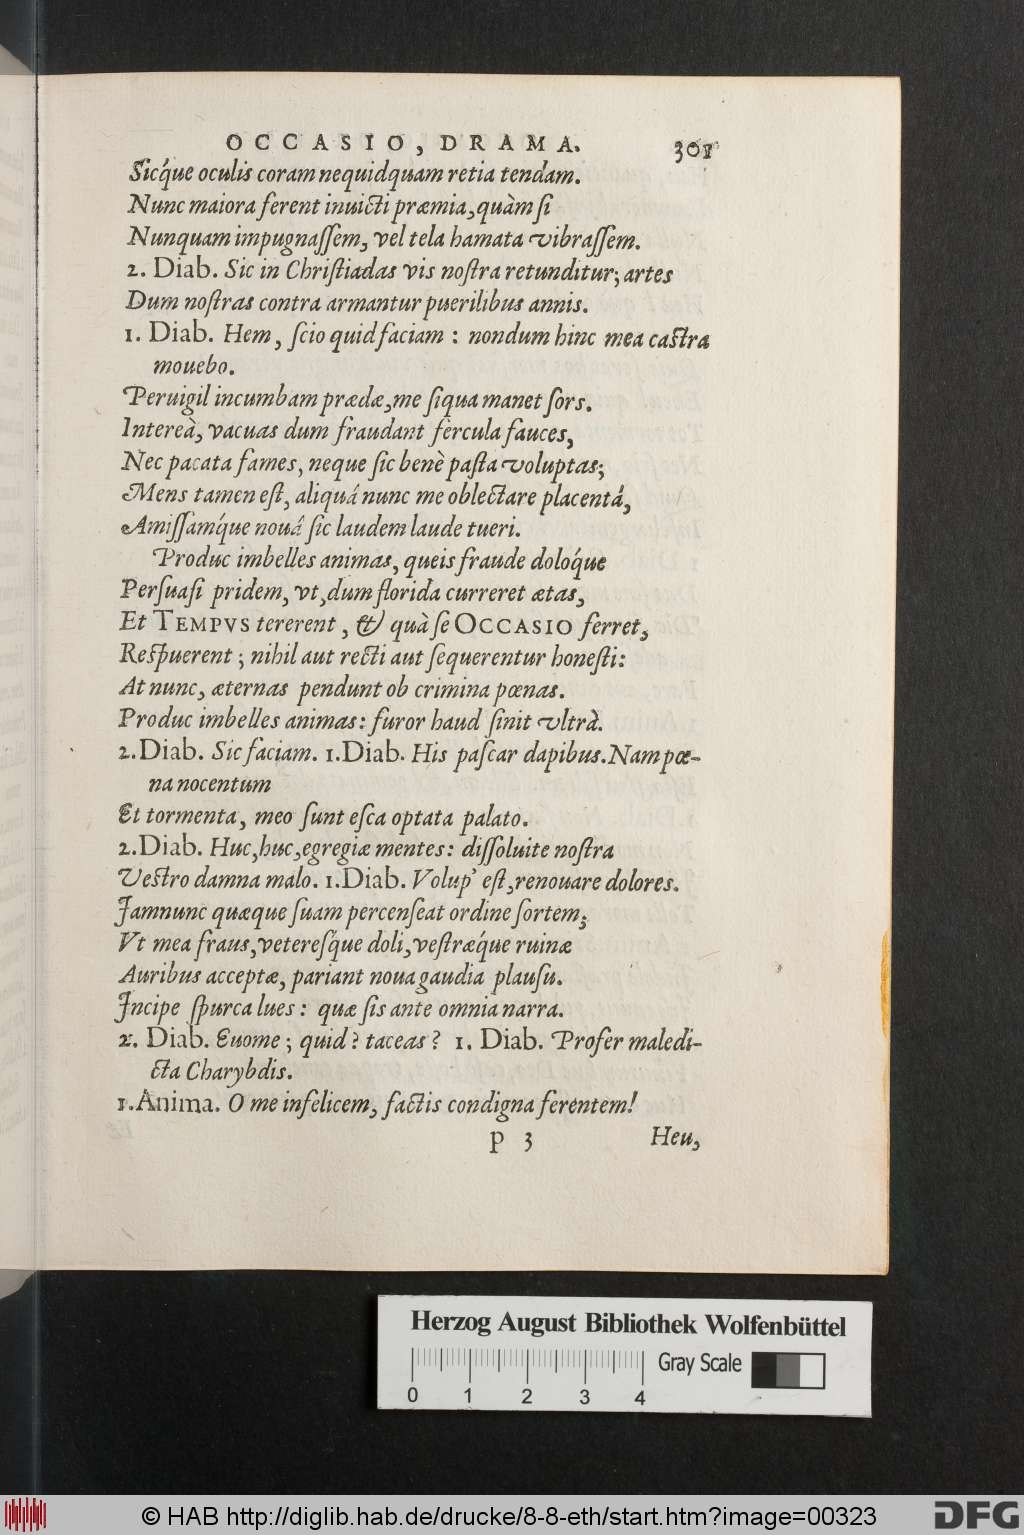 OCCASIO, DRAMA. 301
Sicq́ue oculis coram nequidquam retia tendam.
Nunc maiora ferent inuicti præmia, quàm si
Nunquam impugnassem, vel tela hamata vibrassem.
2. Diab. Sic in Christiadas vis nostra retunditur; artes
Dum nostras contra armantur puerilibus annis.
1. Diab. Hem, scio quid faciam: nondum hinc mea castra
mouebo.
Peruigil incumbam prædæ, me siqua manet sors.
Intereà, vacuas dum fraudant fercula fauces,
Nec pacata fames, neque sic benè pasta voluptas;
Mens tamen est, aliquá nunc me oblectare placentá,
Amissamq́ue nouá sic laudem laude tueri.
Produc imbelles animas, queis fraude doloq́ue
Persuasi pridem, vt, dum florida curreret ætas,
Et TEMPVS tererent, & quà se OCCASIO ferret,
Respuerent; nihil aut recti aut sequerentur honesti:
At nunc, æternas pendunt ob crimina pœnas.
Produc imbelles animas: furor haud sinit vltrà.
2. Diab. Sic faciam. 1. Diab. His pascar dapibus. Nam pœ-
na nocentum
Et tormenta, meo sunt esca optata palato.
2. Diab. Huc, huc, egregiæ mentes: dissoluite nostra
Vestro damna malo. 1. Diab. Volup' est, renouare dolores.
Jamnunc quæque suam percenseat ordine sortem;
Vt mea fraus, veteresq́ue doli, vestræq́ue ruinæ
Auribus acceptæ, pariant noua gaudia plausu.
Jncipe spurca lues: quæ sis ante omnia narra.
2. Diab. Euome; quid? taceas? 1. Diab. Profer maledi-
cta Charybdis.
1. Anima. O me infelicem, factis condigna ferentem!
p 3 Heu,
Herzog August Bibliothek Wolfenbüttel
Gray Scale
0 1 2 3 4
© HAB http://diglib.hab.de/drucke/8-8-eth/start.htm?image=00323
DFG